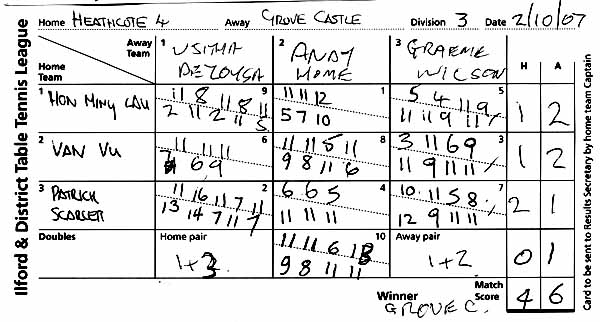 Ilford & District Table Tennis League
Home HEATHCOTE 4 Away GROVE CASTLE Division 3 Date 2/10/07
Away Team
Home Team
1 USITHA DEZOYSA
2 ANDY HOME
3 GRAEME WILSON
H A
1 HON MING LAU
9 11 8 11 8 11
2 11 2 11 5
1 11 11 12
5 7 10
5 5 4 11 9
11 11 9 11
1 2
2 VAN VU
6 11 11 11
6 9
8 11 11 5 11
9 8 11 6
3 3 11 6 9
11 9 11 11
1 2
3 PATRICK SCARLET
2 11 16 11 7 11
13 14 7 11 7
4 6 6 5
11 11 11
7 10 11 5 8
12 9 11 11
2 1
Doubles
Home pair
1+3
10 11 11 6 13
9 8 11 11
Away pair
1+2
0 1
Winner GROVE C.
Match Score 4 6
Card to be sent to Results Secretary by home team Captain